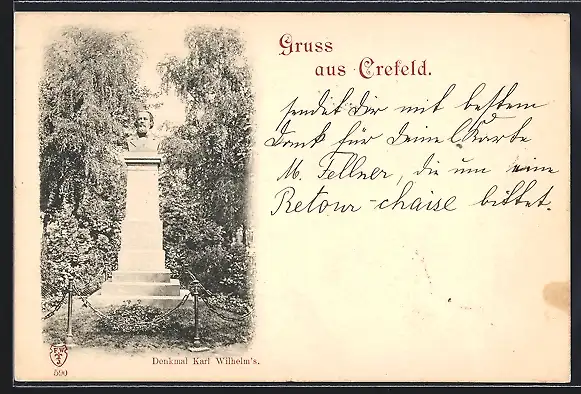 Gruss
aus Crefeld.
sendet Dir mit bestem
Dank für Deine Karte
M. Fellner, die um eine
Retour-chaise bittet.
Denkmal Karl Wilhelm's.
590